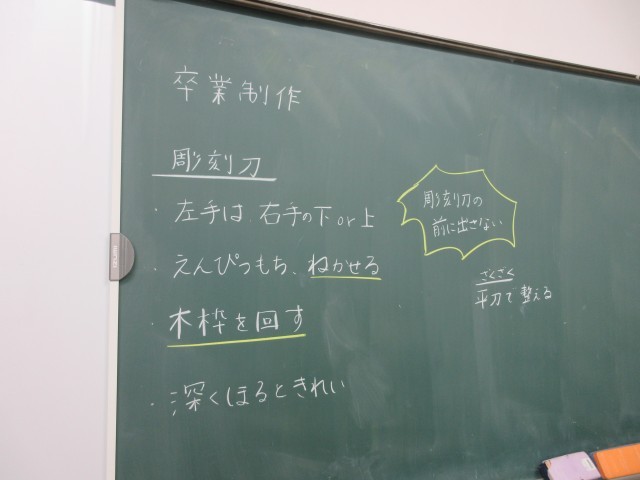 卒業制作
彫刻刀
・左手は、右手の下or上
・えんぴつもち、ねかせる
・木枠を回す
・深くほるときれい
彫刻刀の
前に出さない
ざくざく
平刀で整える